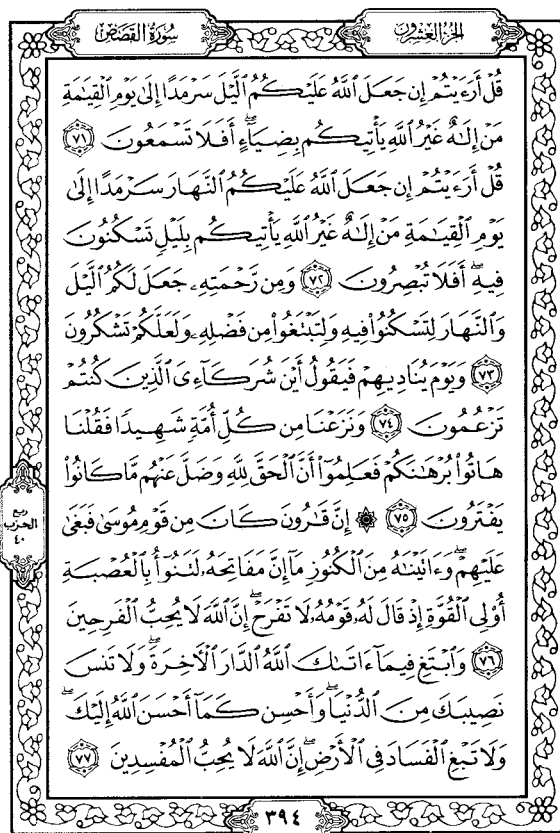 سُورَةُ القَصَصِ
الجُزْءُ العِشْرُونَ
قُلْ أَرَءَيْتُمْ إِن جَعَلَ ٱللَّهُ عَلَيْكُمُ ٱلَّيْلَ سَرْمَدًا إِلَىٰ يَوْمِ ٱلْقِيَٰمَةِ
مَنْ إِلَٰهٌ غَيْرُ ٱللَّهِ يَأْتِيكُم بِضِيَآءٍ ۖ أَفَلَا تَسْمَعُونَ ٧١
قُلْ أَرَءَيْتُمْ إِن جَعَلَ ٱللَّهُ عَلَيْكُمُ ٱلنَّهَارَ سَرْمَدًا إِلَىٰ
يَوْمِ ٱلْقِيَٰمَةِ مَنْ إِلَٰهٌ غَيْرُ ٱللَّهِ يَأْتِيكُم بِلَيْلٍ تَسْكُنُونَ
فِيهِ ۖ أَفَلَا تُبْصِرُونَ ٧٢ وَمِن رَّحْمَتِهِۦ جَعَلَ لَكُمُ ٱلَّيْلَ
وَٱلنَّهَارَ لِتَسْكُنُوا۟ فِيهِ وَلِتَبْتَغُوا۟ مِن فَضْلِهِۦ وَلَعَلَّكُمْ تَشْكُرُونَ
٧٣ وَيَوْمَ يُنَادِيهِمْ فَيَقُولُ أَيْنَ شُرَكَآءِىَ ٱلَّذِينَ كُنتُمْ
تَزْعُمُونَ ٧٤ وَنَزَعْنَا مِن كُلِّ أُمَّةٍ شَهِيدًا فَقُلْنَا
هَاتُوا۟ بُرْهَٰنَكُمْ فَعَلِمُوٓا۟ أَنَّ ٱلْحَقَّ لِلَّهِ وَضَلَّ عَنْهُم مَّا كَانُوا۟
يَفْتَرُونَ ٧٥ ۞ إِنَّ قَٰرُونَ كَانَ مِن قَوْمِ مُوسَىٰ فَبَغَىٰ
عَلَيْهِمْ ۖ وَءَاتَيْنَٰهُ مِنَ ٱلْكُنُوزِ مَآ إِنَّ مَفَاتِحَهُۥ لَتَنُوٓأُ بِٱلْعُصْبَةِ
أُو۟لِى ٱلْقُوَّةِ إِذْ قَالَ لَهُۥ قَوْمُهُۥ لَا تَفْرَحْ ۖ إِنَّ ٱللَّهَ لَا يُحِبُّ ٱلْفَرِحِينَ
٧٦ وَٱبْتَغِ فِيمَآ ءَاتَىٰكَ ٱللَّهُ ٱلدَّارَ ٱلْءَاخِرَةَ ۖ وَلَا تَنسَ
نَصِيبَكَ مِنَ ٱلدُّنْيَا ۖ وَأَحْسِن كَمَآ أَحْسَنَ ٱللَّهُ إِلَيْكَ ۖ
وَلَا تَبْغِ ٱلْفَسَادَ فِى ٱلْأَرْضِ ۖ إِنَّ ٱللَّهَ لَا يُحِبُّ ٱلْمُفْسِدِينَ ٧٧
ربع
الحزب
٤٠
٣٩٤